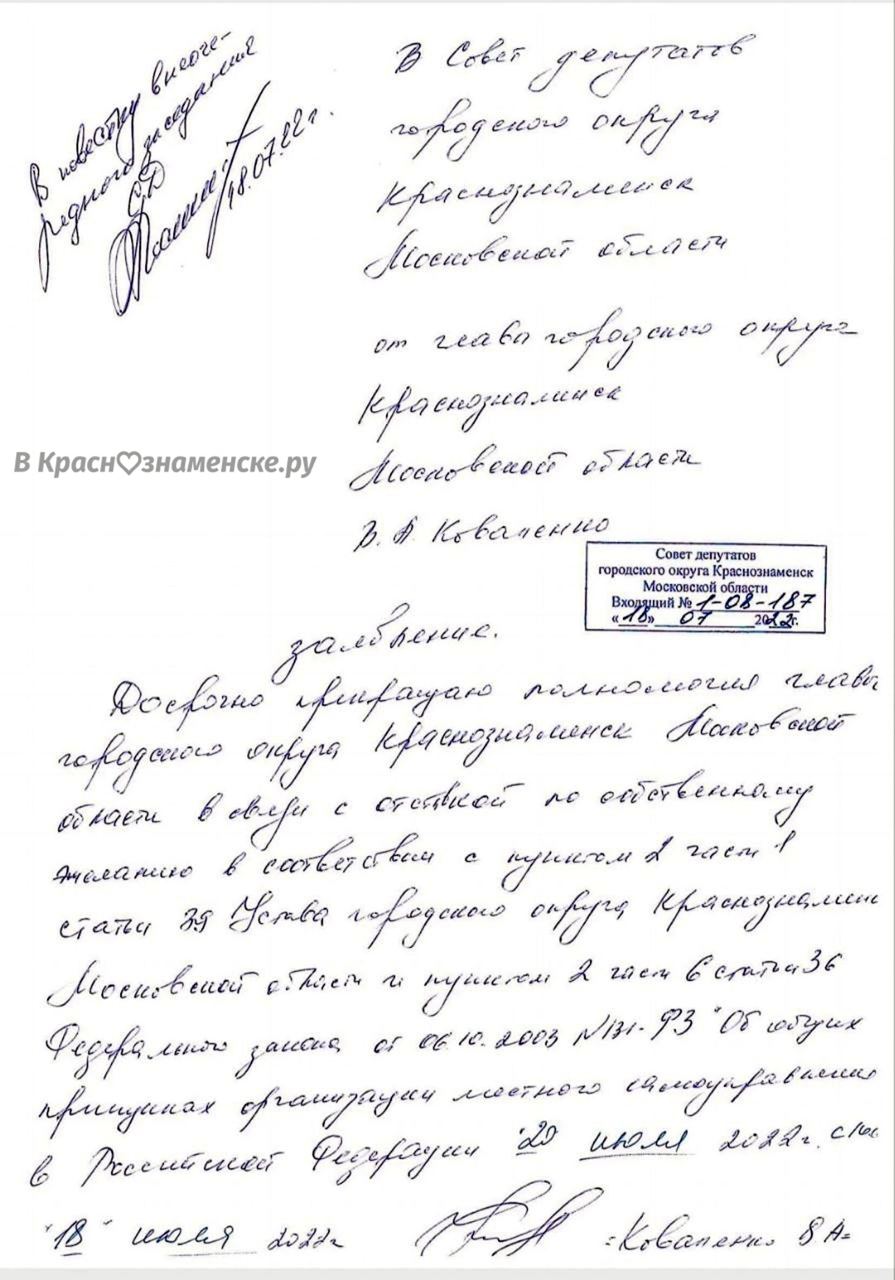 В повестку внеоче-
редного заседания
СД
18.07.22 г.
В Совет депутатов
городского округа
Краснознаменск
Московской области
от главы городского округа
Краснознаменск
Московской области
В.А. Коваленко
В Красн♡знаменске.ру
Совет депутатов
городского округа Краснознаменск
Московской области
Входящий № 1-08-187
«18» 07 2022г.
заявление.
Досрочно прекращаю полномочия главы
городского округа Краснознаменск Московской
области в связи с отставкой по собственному
желанию в соответствии с пунктом 2 части 1
статьи 39 Устава городского округа Краснознаменск
Московской области и пунктом 2 части 6 статьи 36
Федерального закона от 06.10.2003 №131-ФЗ "Об общих
принципах организации местного самоуправления
в Российской Федерации "20 июля 2022г.
"18" июля 2022г Коваленко В А